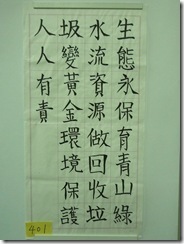 生態永保育青山綠
水流資源做回收垃
圾變黃金環境保護
人人有責
401